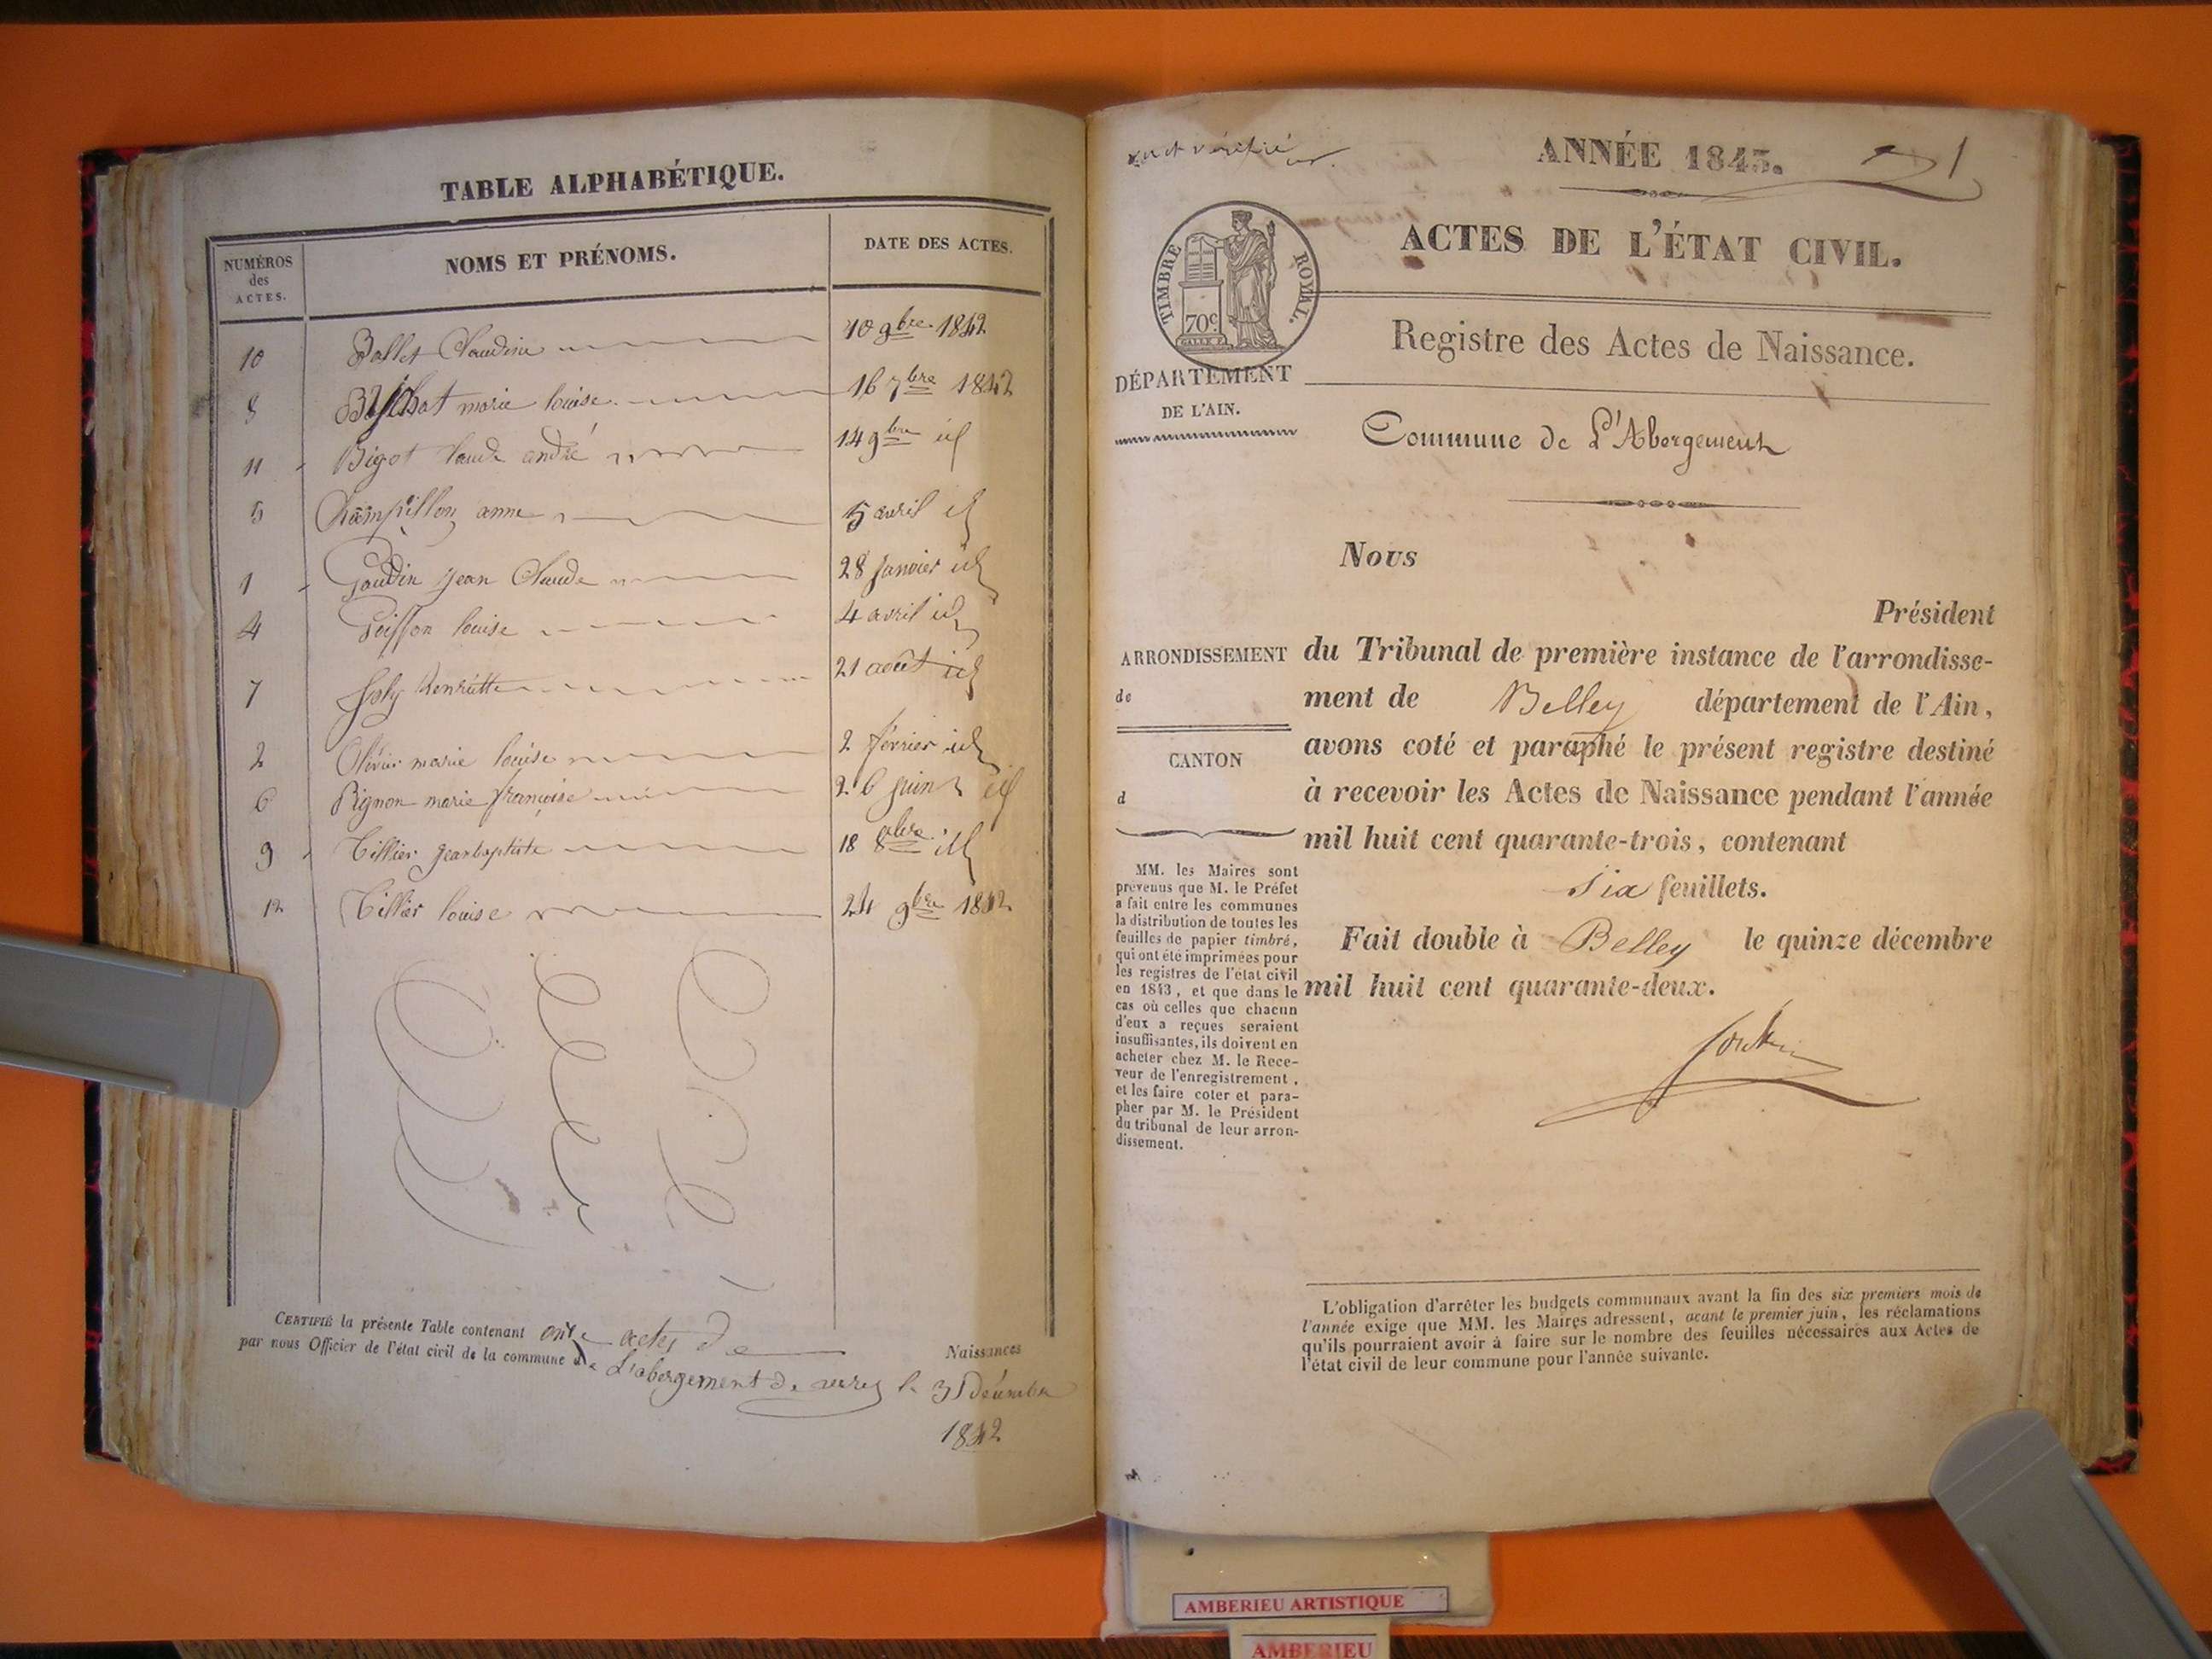 TABLE ALPHABÉTIQUE.
NUMÉROS
des
ACTES.
NOMS ET PRÉNOMS.
DATE DES ACTES.
10 Ballet Claudine 10 9bre 1842
8 marie louise 16 7bre 1842
11 Bigot Claude andré 14 9bre id
5 Champillon anne 5 avril id
1 Goudin Jean Claude 28 Janvier id
4 Poisson louise 4 avril id
7 Joly henriette 21 août id
2 Olivier marie louise 2 février id
6 Pignon marie françoise 26 juin id
9 Tillier Jean baptiste 18 8bre id
12 Tillier louise 24 9bre 1842
CERTIFIÉ la présente Table contenant onze actes de Naissances
par nous Officier de l'état civil de la commune de L'abergement de varey le 31 Décembre
1842
vu et vérifié
ANNÉE 1843.
1
TIMBRE ROYAL.
70c
ACTES DE L'ÉTAT CIVIL.
Registre des Actes de Naissance.
DÉPARTEMENT
DE L'AIN.
Commune de L'Abergement
Nous
Président
ARRONDISSEMENT
de
CANTON
d
du Tribunal de première instance de l'arrondisse-
ment de Belley département de l'Ain,
avons coté et paraphé le présent registre destiné
à recevoir les Actes de Naissance pendant l'année
mil huit cent quarante-trois, contenant
six feuillets.
Fait double à Belley le quinze décembre
mil huit cent quarante-deux.
MM. les Maires sont
prévenus que M. le Préfet
a fait entre les communes
la distribution de toutes les
feuilles de papier timbré,
qui ont été imprimées pour
les registres de l'état civil
en 1843, et que dans le
cas où celles que chacun
d'eux a reçues seraient
insuffisantes, ils doivent en
acheter chez M. le Rece-
veur de l'enregistrement,
et les faire coter et para-
pher par M. le Président
du tribunal de leur arron-
dissement.
L'obligation d'arrêter les budgets communaux avant la fin des six premiers mois de
l'année exige que MM. les Maires adressent, avant le premier juin, les réclamations
qu'ils pourraient avoir à faire sur le nombre des feuilles nécessaires aux Actes de
l'état civil de leur commune pour l'année suivante.
AMBERIEU ARTISTIQUE
AMBERIEU